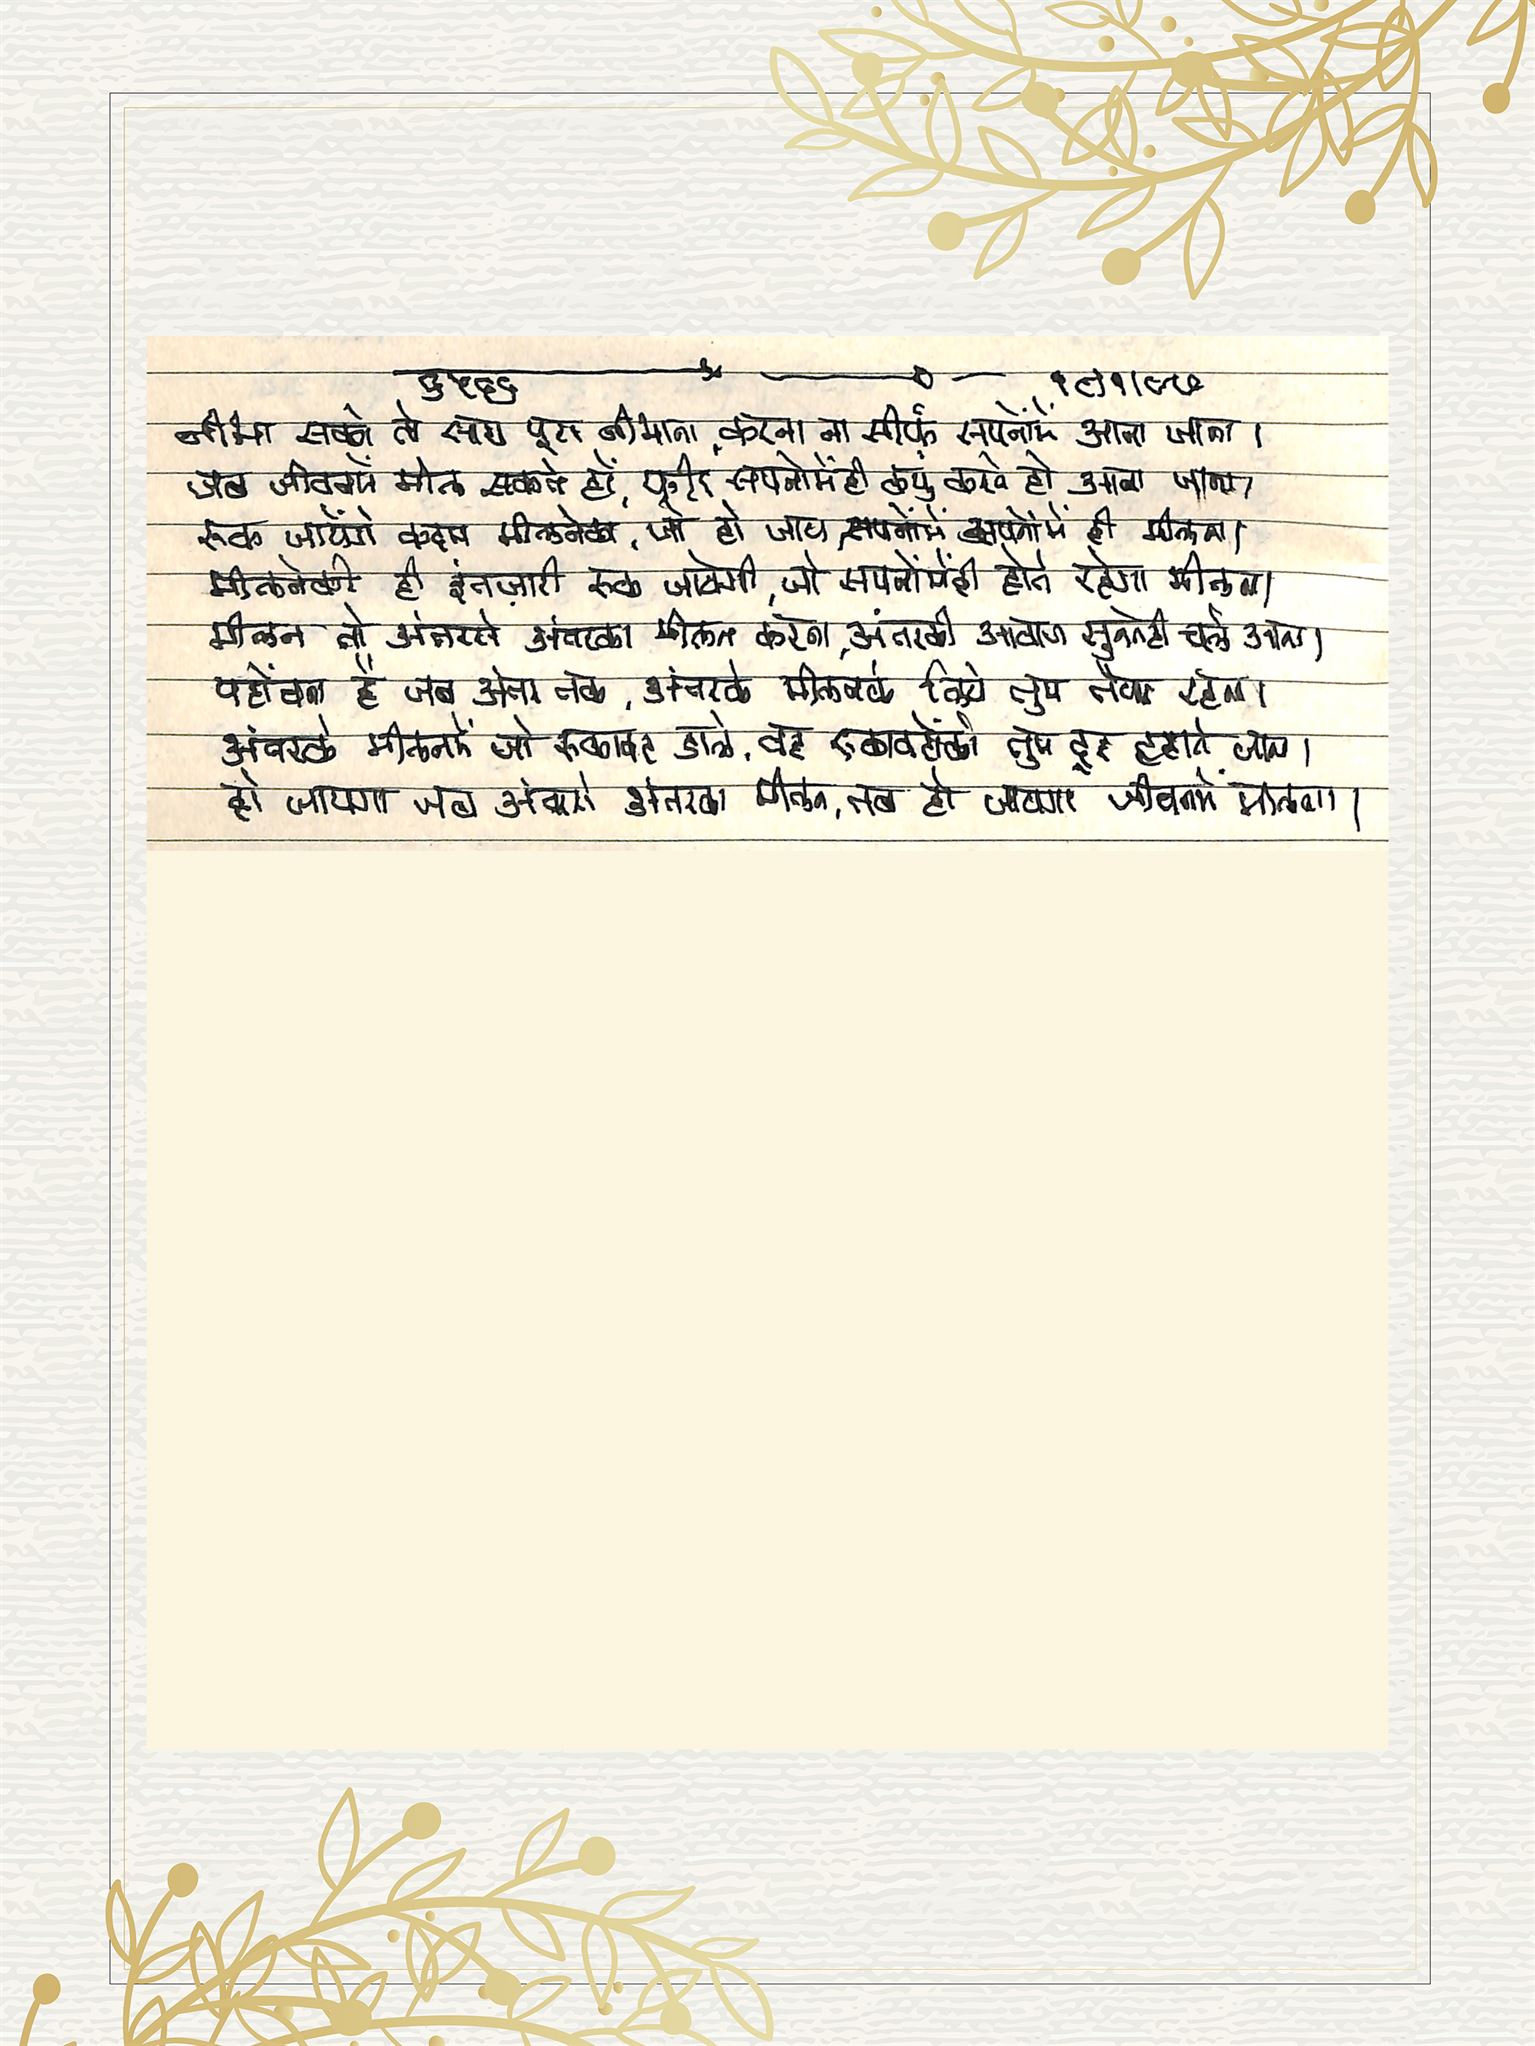 नीभा सको तो साथ पूरा नीभाना, करना ना सीर्फ सपनोंमें आना जाना ।
जब जीवनमें मील सकते हों, फीर सपनोमेंही कयुं करते हो आना जाना
रूक जायेंगे कदम मीलनेका, जो हो जाय सपनोंमें सपनोंमें ही मीलना ।
मीलनेकी ही इंतज़ारी रूक जायेगी, जो सपनोंमेंही होते रहेगा मीलना ।
मीलन तो अंतरसे अंतरका मीलन करना, अंतरकी आवाज सुनतेही चले आना ।
पहोंचना है जब अंतर तक, अंतरके मीलनके लिये तुम तैयार रहेना ।
अंतरके मीलनमें जो रूकावट डाले, वह रूकावटोंको तुम दूर हटाते जाना ।
हो जायगा जब अंतरसे अंतरका मीलन, तब हो जायगा जीवनमें मीलना ।